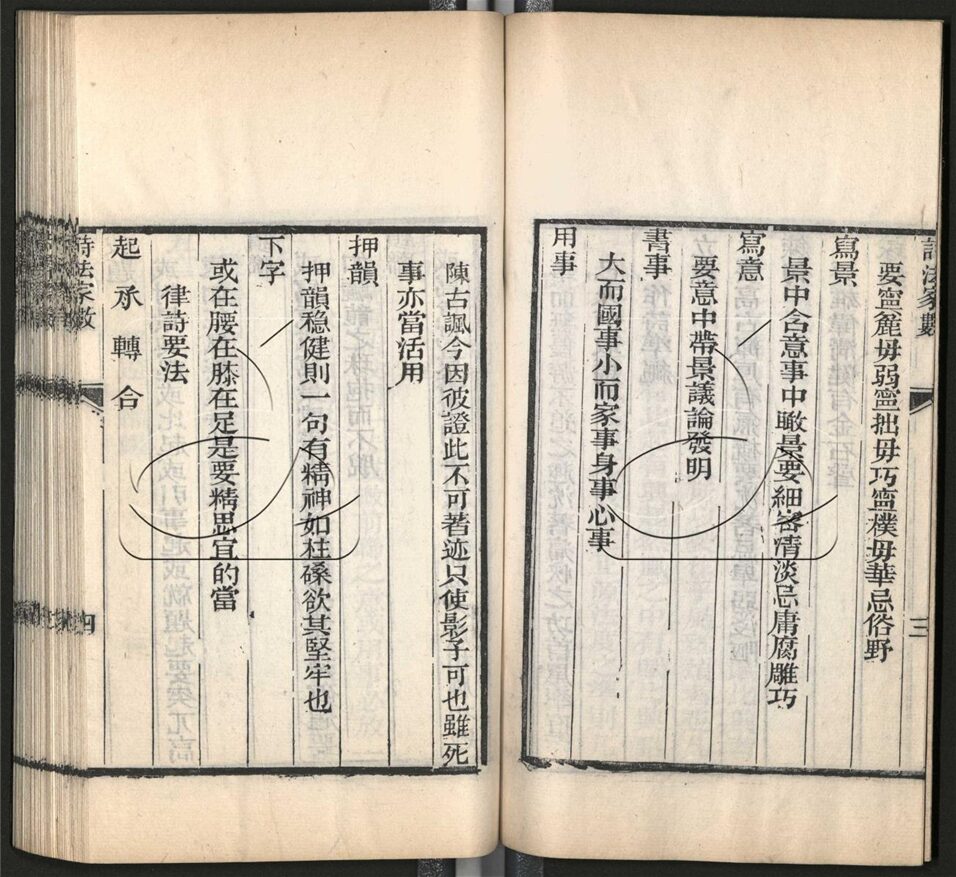 詩法家數
三
要寧麄毋弱寧拙毋巧寧樸毋華忌俗野
寫景
景中含意事中瞰景要細密清淡忌庸腐雕巧
寫意
要意中帶景議論發明
書事
大而國事小而家事身事心事
用事
陳古諷今因彼證此不可著迹只使影子可也雖死
事亦當活用
押韻
押韻稳健則一句有精神如柱磉欲其堅牢也
下字
或在腰在膝在足是要精思宜的當
律詩要法
起承轉合
詩法家數
四